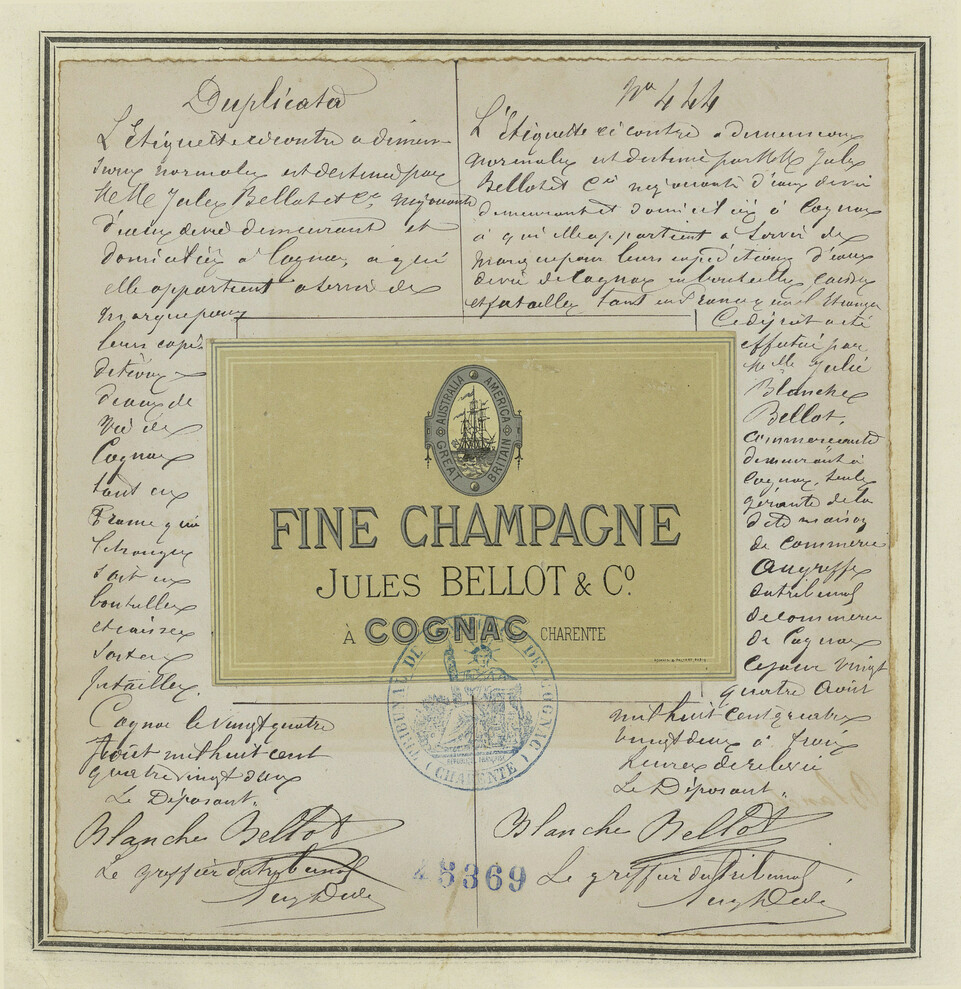 Duplicata
L'Etiquette ci contre a dimen-
sions normales est destinée par
MM. Jules Bellot et Cie négociants
d'eaux de vie demeurant et
domiciliés à Cognac, à qui
elle appartient a servir de
marque pour
leurs expé-
ditions
d'eaux de
Vie de
Cognac
tant en
France qu'à
l'étranger
soit en
bouteilles
et caisses
soit en
futailles.
Cognac le vingt quatre
Août mil huit cent
quatre vingt deux
Le Déposant.
Blanche Bellot
Le greffier du tribunal
No 444
L'Etiquette ci contre a dimensions
normales est destiné par MM Jules
Bellot et Cie négociants d'eaux de vie
demeurant et domiciliés à Cognac
à qui elle appartient a servir de
marque pour leurs expéditions d'eaux
de vie de Cognac en bouteilles caisses
et futailles tant en France qu'à l'Etranger
Ce dépôt a été
effectué par
Melle Julie
Blanche
Bellot,
Commerçante
demeurant à
Cognac, seule
gérante de la
dite maison
de commerce
Au greffe
du tribunal
de commerce
de Cognac
Ce jour vingt
quatre Août
mil huit cent quatre
vingt deux à trois
heures de relevée
Le Déposant.
Blanche Bellot
Le greffier du Tribunal
AUSTRALIA AMERICA
GREAT BRITAIN
FINE CHAMPAGNE
JULES BELLOT & Co.
À COGNAC CHARENTE
TRIBUNAL DE DE COGNAC
RÉPUBLIQUE FRANÇAISE
(CHARENTE)
48369